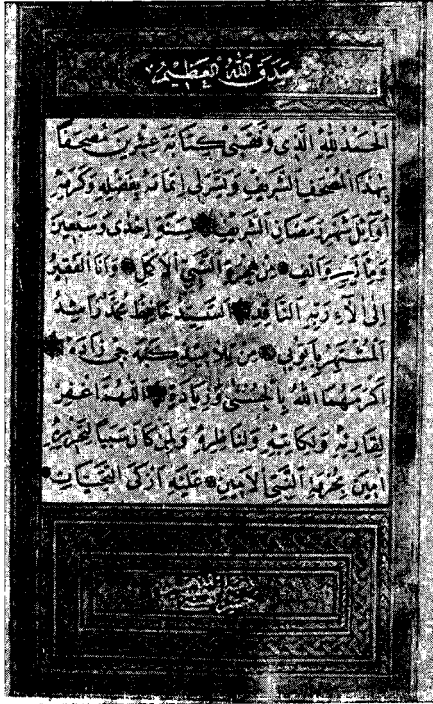 صَدَقَ اللّٰهُ الْعَظِيمُ
الْحَمْدُ لِلّٰهِ الَّذِى وَفَّقَنِى كِتَابَةَ عِشْرِينَ مُصْحَفًا
بِهٰذَا الْمُصْحَفِ الشَّرِيفِ وَيَسَّرَ لِى اِتْمَامَهُ بِفَضْلِهِ وَكَرَمِهِ
اَوَائِلَ شَهْرِ رَمَضَانَ الشَّرِيفِ لِسَنَةِ اِحْدٰى وَسَبْعِينَ
وَمِأَتَيْنِ وَاَلْفٍ مِنْ هِجْرَةِ النَّبِىِّ الْاَكْمَلِ وَاَنَا الْفَقِيرُ
اِلٰى اٰلَاءِ رَبِّهِ السَّيِّدُ حَافِظْ مُحَمَّدْ رَاشِدُ
الْمُشْتَهَرُ بِاَيُّوبِى مِنْ تَلَامِيذِ چِى زَادَهْ
اَكْرَمَهُمَا اللّٰهُ بِالْحُسْنٰى وَزِيَادَةٍ اَللّٰهُمَّ اغْفِرْ
لِقَارِئِهِ وَلِكَاتِبِهِ وَلِنَاظِرِهِ وَلِمَنْ كَانَ سَبَبًا لِتَحْرِيرِهِ
اٰمِينَ بِحُرْمَةِ النَّبِىِّ الْاَمِينِ عَلَيْهِ اَزْكَى التَّحِيَّاتِ